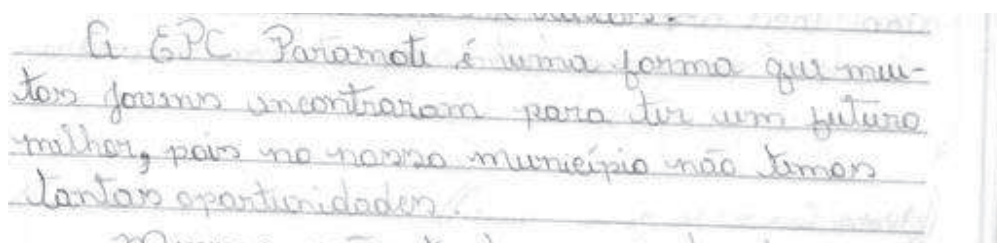 A EPC Paramoti é uma forma que mui-
tos jovens encontraram para ter um futuro
melhor, pois no nosso município não temos
tantas oportunidades.